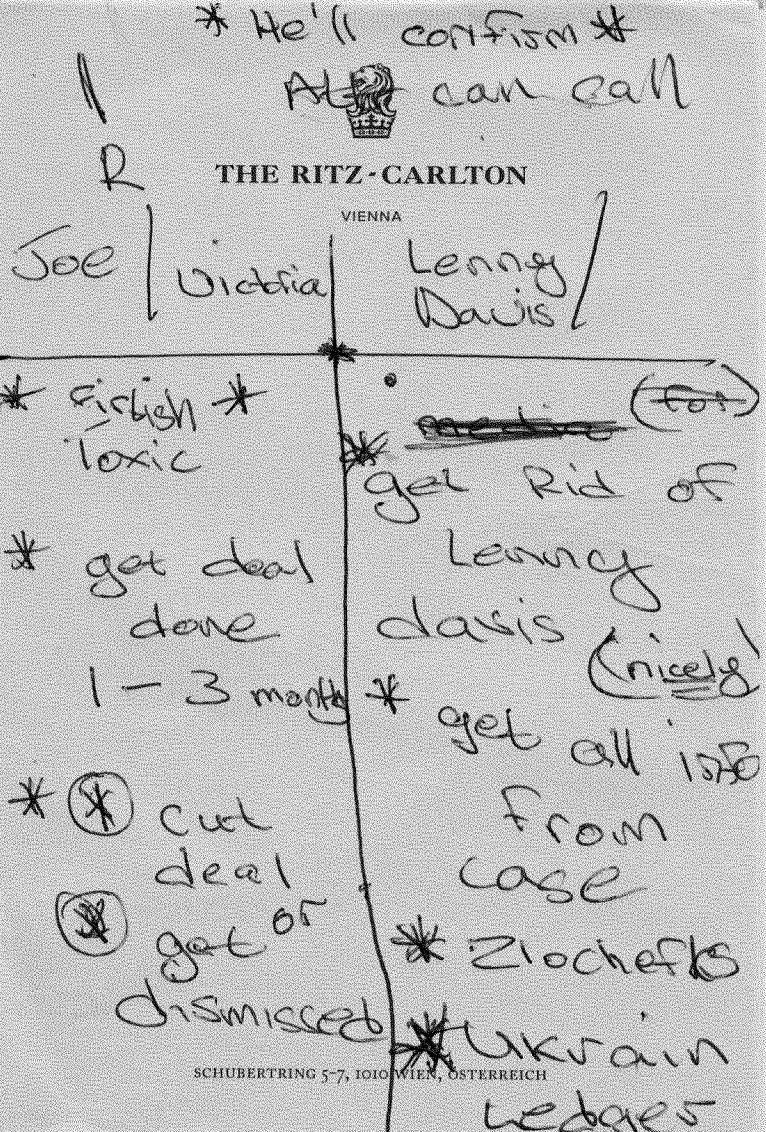 * He'll confirm *
can call
R
THE RITZ-CARLTON
VIENNA
Joe / Victoria
* Firtish *
Toxic
* get deal
done
1 - 3 months
* * cut
deal
or
* get
dismissed
Lenny
Davis /
media (for)
* get Rid of
Lenny
davis
(nicely)
* get all info
From
case
* Zlochefks
* Ukrain
Ledger
SCHUBERTRING 5-7, 1010 WIEN, ÖSTERREICH